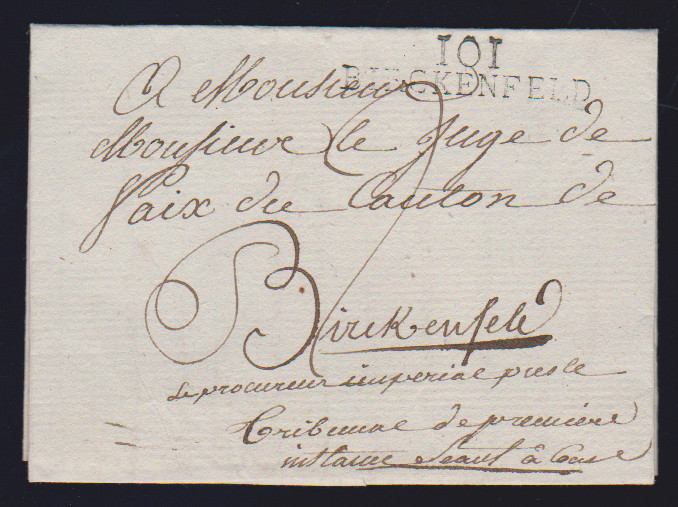 101
BIRCKENFELD
A Monsieur
Monsieur le Juge de
Paix du Canton de
Birckenfeld
Le procureur imperial pres le
Tribunal de premiere
instance Seant à